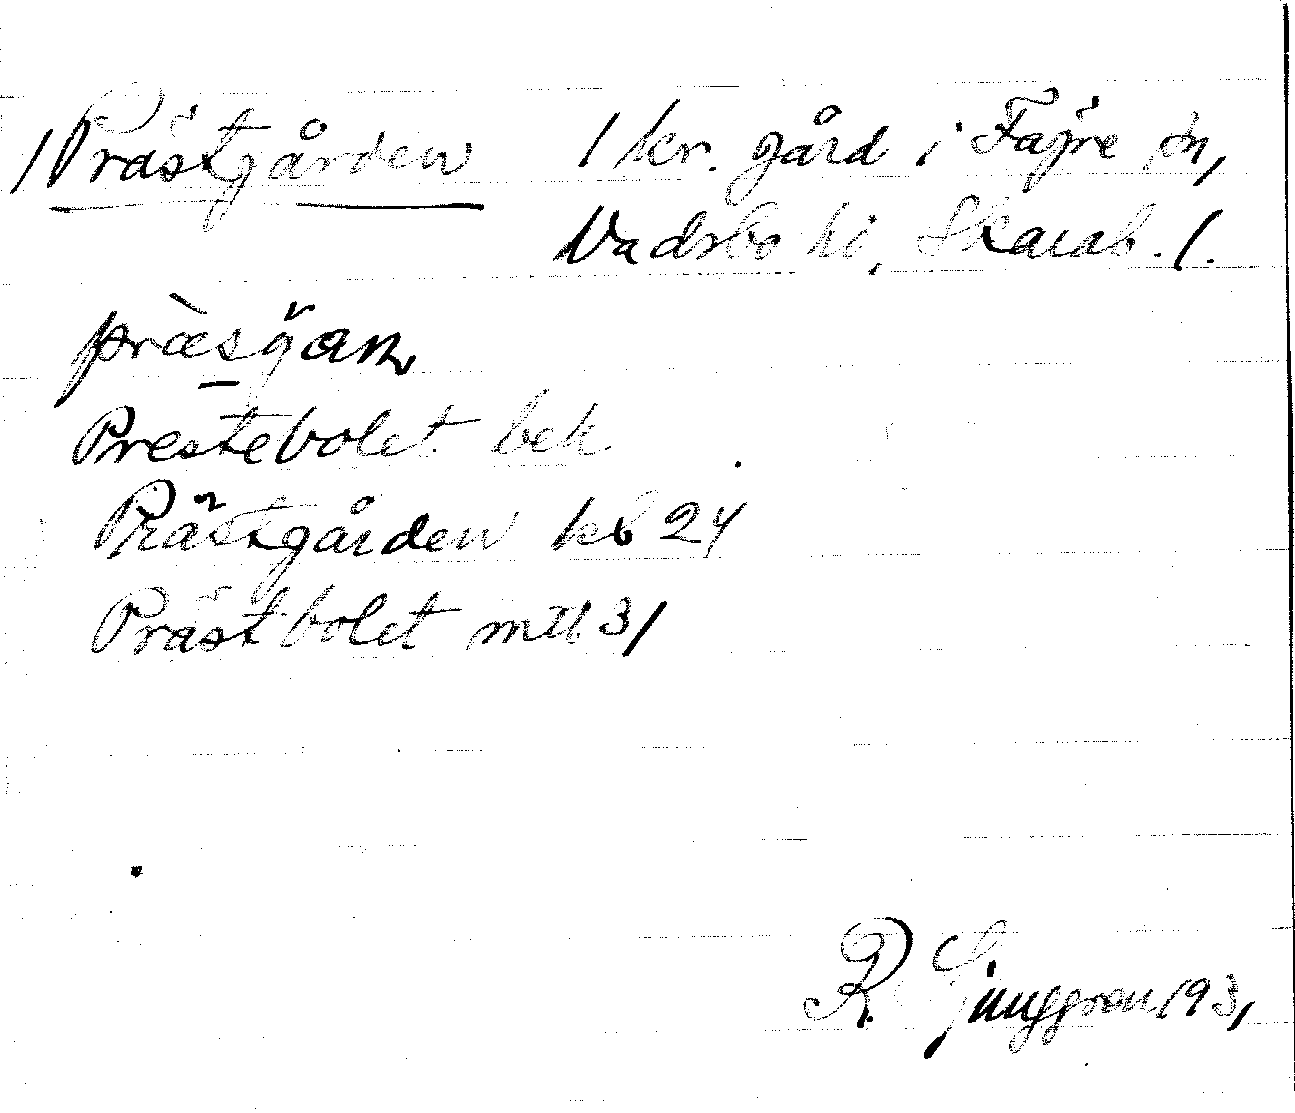 /Prästgården 1 kr. gård i Fägre sn,
Vadsbo hd, Skarab. l.
præ̀sgan
Prestebolet bek
Prästgården kb 24
Prästbolet mtl 31
R. Ljunggren 1931